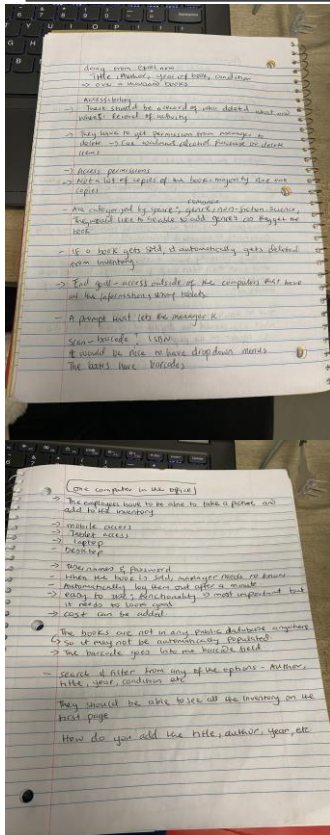 doing from excel now
Title, Author, year of book, condition
→ over a thousand books
Accessibility
→ There should be a record of who deleted what and
when. Record of activity
→ They have to get permission from manager to
delete → alcohol purchase or delete
items
→ Access permissions
→ Not a lot of copies of the book; majority have one
copies
romance
- Are categorized by genre; genre: non-fiction, science,
They would like to be able to add genres
book
- If a book gets sold, it automatically gets deleted
from inventory.
→ End goal - access outside of the computers that have
all the information using tablets
- A prompt that lets the manager k
scan - barcode; ISBN
It would be nice to have dropdown menus
The books have barcodes
(one computer in the office)
→ The employees have to be able to take a picture and
add to the inventory
→ mobile access
→ Tablet access
→ laptop
- Desktop
→ Usernames & Password
- When the book is sold, manager needs to know
- Automatically log them out after a minute
→ easy to use; functionality is most important but
it needs to look good
→ cost can be added
The books are not in any public database anywhere
so it may not be automatically populated
→ The barcode goes into the barcode field
- Search & filter from any of the options - Author,
title, year, condition etc
They should be able to see all the inventory on the
first page
How do you add the title, author, year, etc